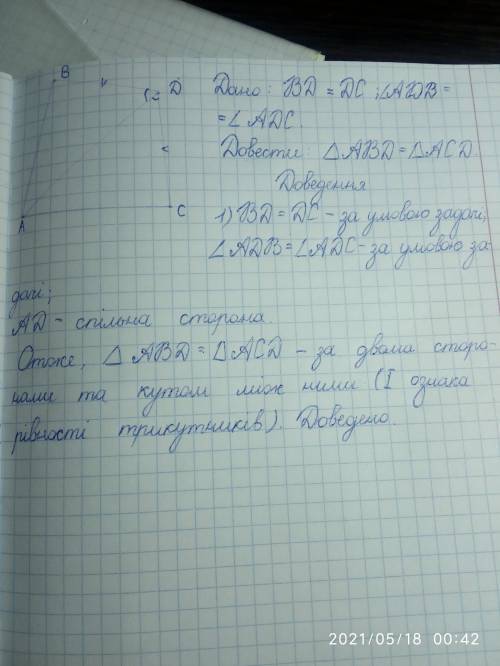 B
D
Дано: BD = DC; ∠ADB =
= ∠ADC.
Довести: △ABD = △ACD.
Доведення
1) BD = DC - за умовою задачі;
C
A
∠ADB = ∠ADC - за умовою за
дачі;
AD - спільна сторона.
Отже, △ABD = △ACD - за двома сторо-
нами та кутом між ними (I ознака
рівності трикутників). Доведено.
2021/05/18 00:42